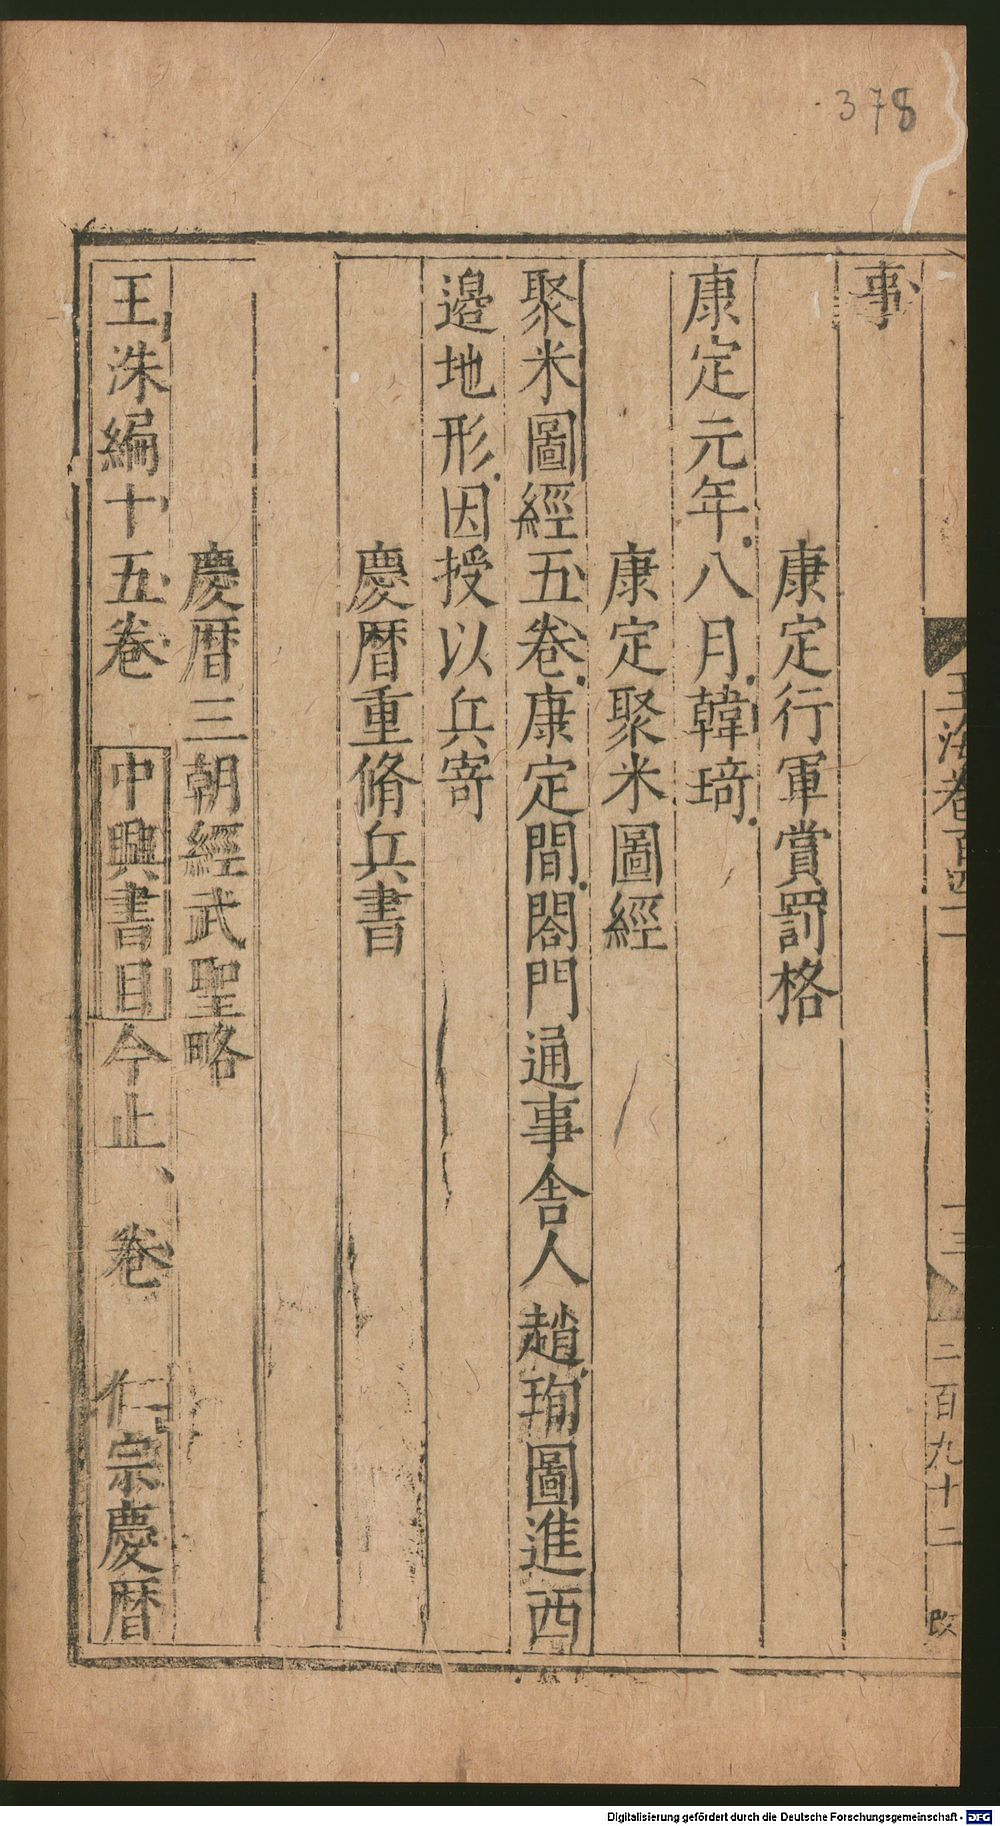 378
事
康定行軍賞罰格
康定元年八月韓琦
康定聚米圖經
聚米圖經五卷康定間閤門通事舍人趙珣圖進西
邊地形因授以兵寄
慶曆重脩兵書
慶曆三朝經武聖略
王洙編十五卷 中興書目今止 卷 仁宗慶曆
玉海卷百四一
十三
二百九十二
Digitalisierung gefördert durch die Deutsche Forschungsgemeinschaft - DFG